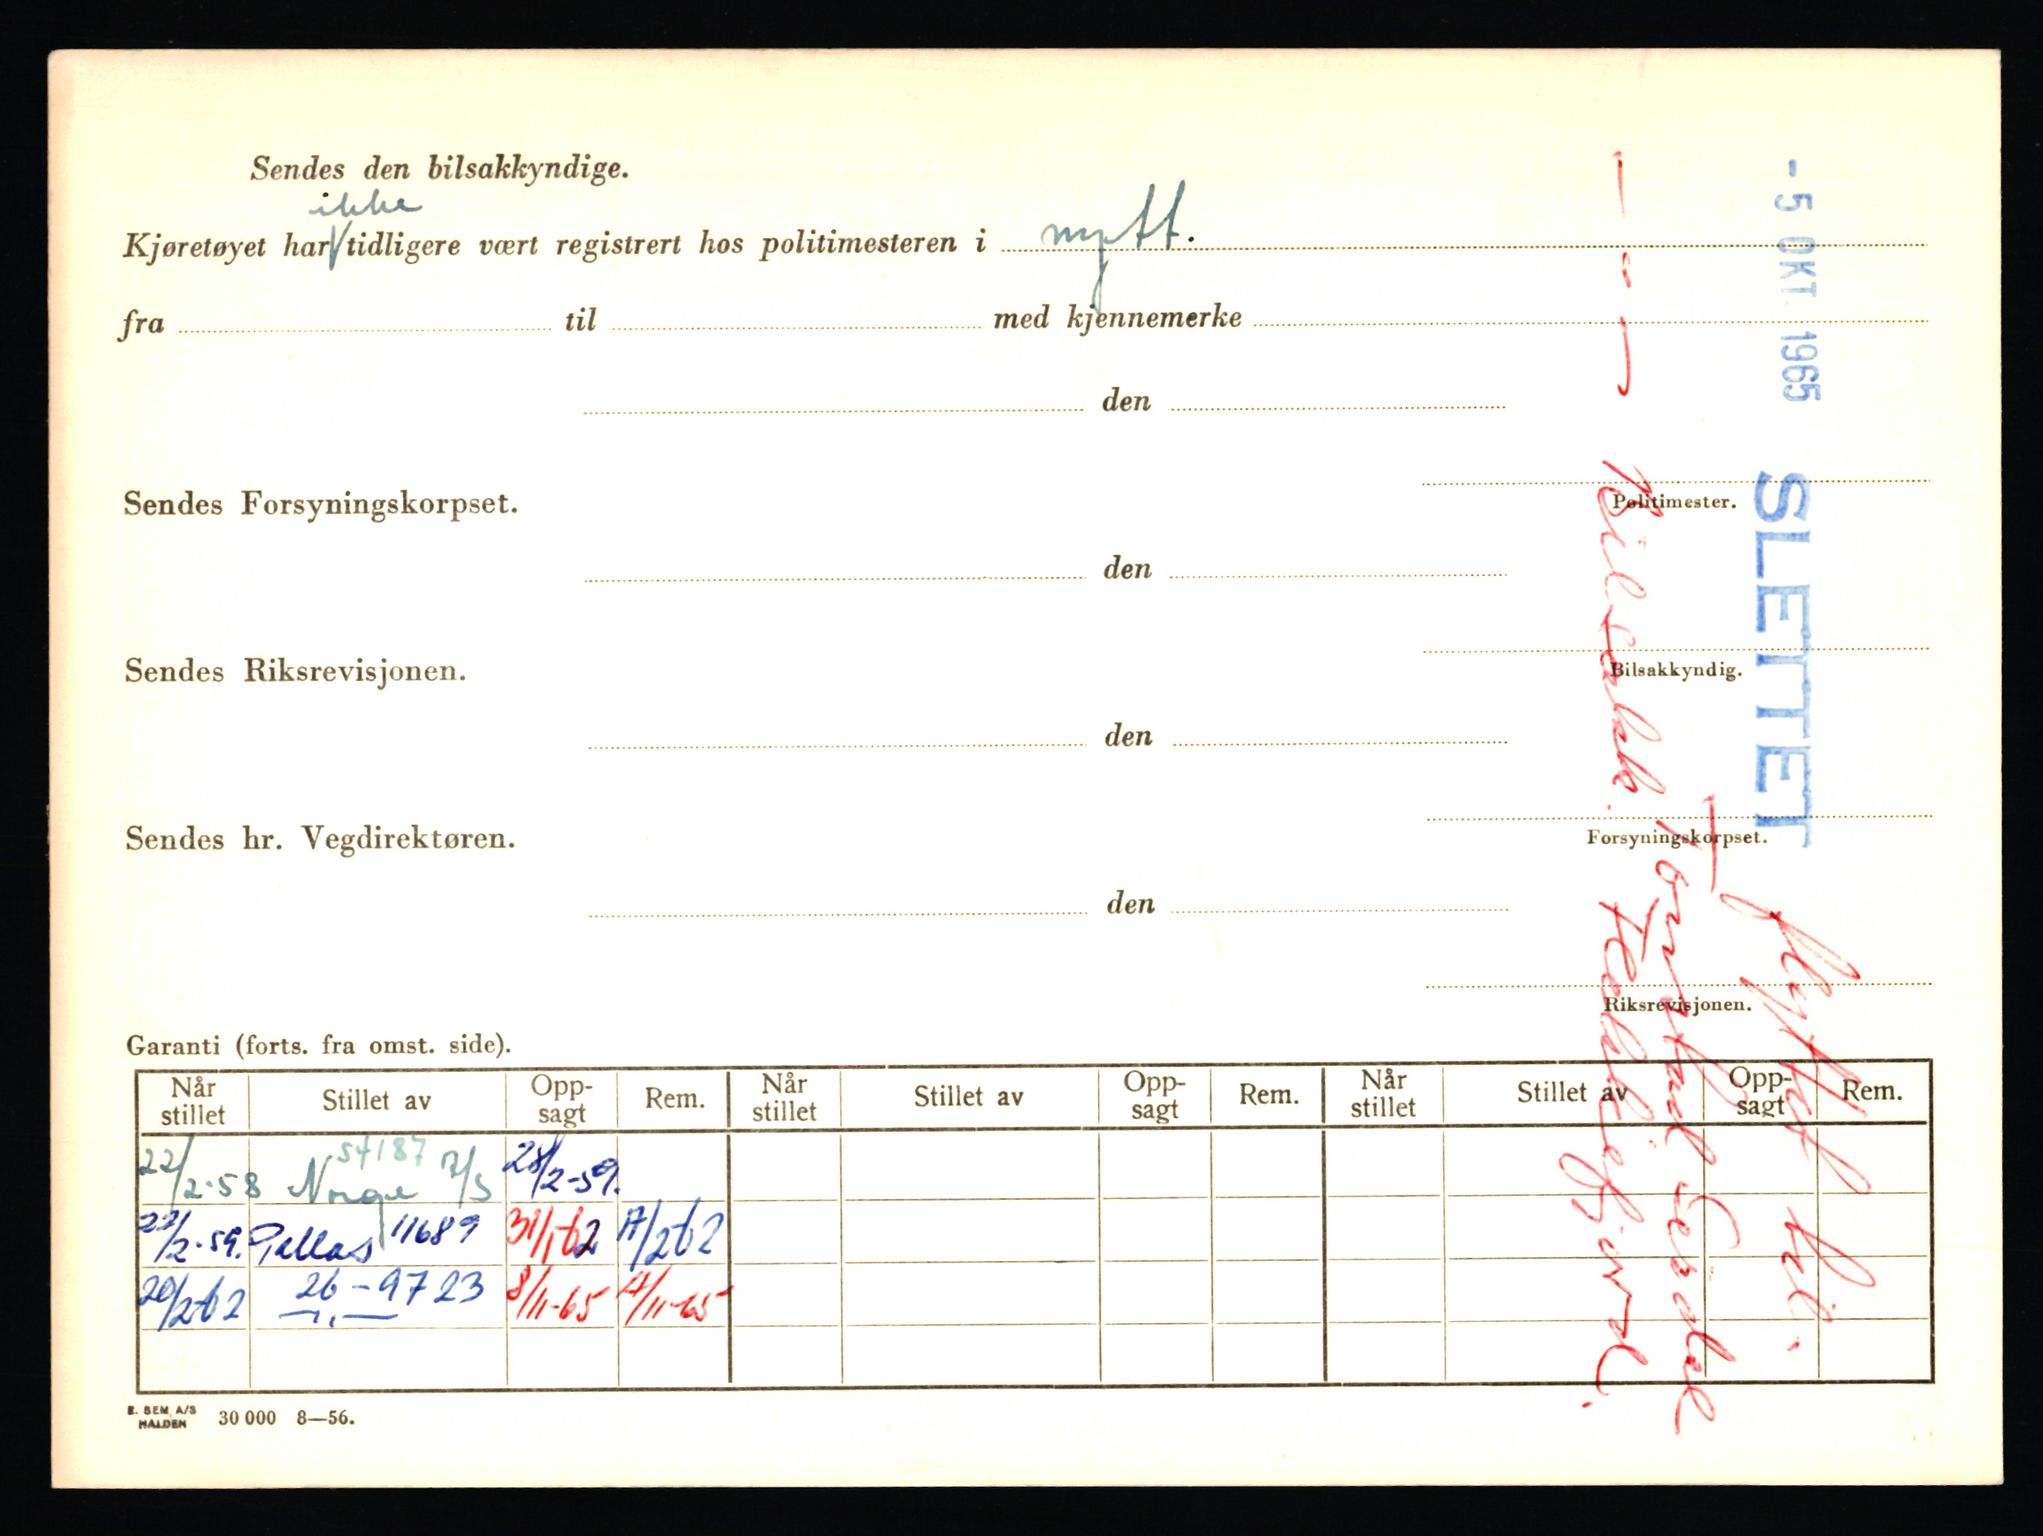 Sendes den bilsakkyndige.
ikke
Kjøretøyet har √ tidligere vært registrert hos politimesteren i nytt.
fra til med kjennemerke
den
Politimester.
Sendes Forsyningskorpset.
den
Bilsakkyndig.
Sendes Riksrevisjonen.
den
Forsyningskorpset.
Sendes hr. Vegdirektøren.
den
Riksrevisjonen.
- 5 OKT 1965 SLETTET
flyttet til.
Torstad
Bilsakk.
Garanti (forts. fra omst. side).
Når stillet Stillet av Opp-sagt Rem. Når stillet Stillet av Opp-sagt Rem. Når stillet Stillet av Opp-sagt Rem.
22/2-58 Norge 54187 28/2-59.
22/2-59. Pallas 11689 31/1-62 17/2-62
20/2-62 26-9723 8/11-65 4/11-65
—„—
E. SEM A/S
HALDEN 30 000 8—56.